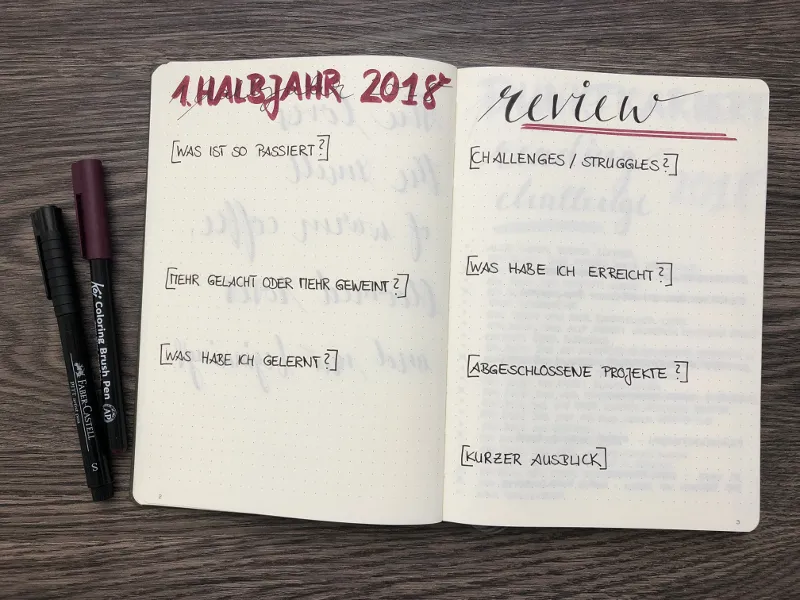 1. HALBJAHR 2018
[WAS IST SO PASSIERT?]
[MEHR GELACHT ODER MEHR GEWEINT?]
[WAS HABE ICH GELERNT?]
2
review
[CHALLENGES / STRUGGLES?]
[WAS HABE ICH ERREICHT?]
[ABGESCHLOSSENE PROJEKTE?]
[KURZER AUSBLICK]
3
Koi Coloring Brush Pen AP
FABER-CASTELL
S